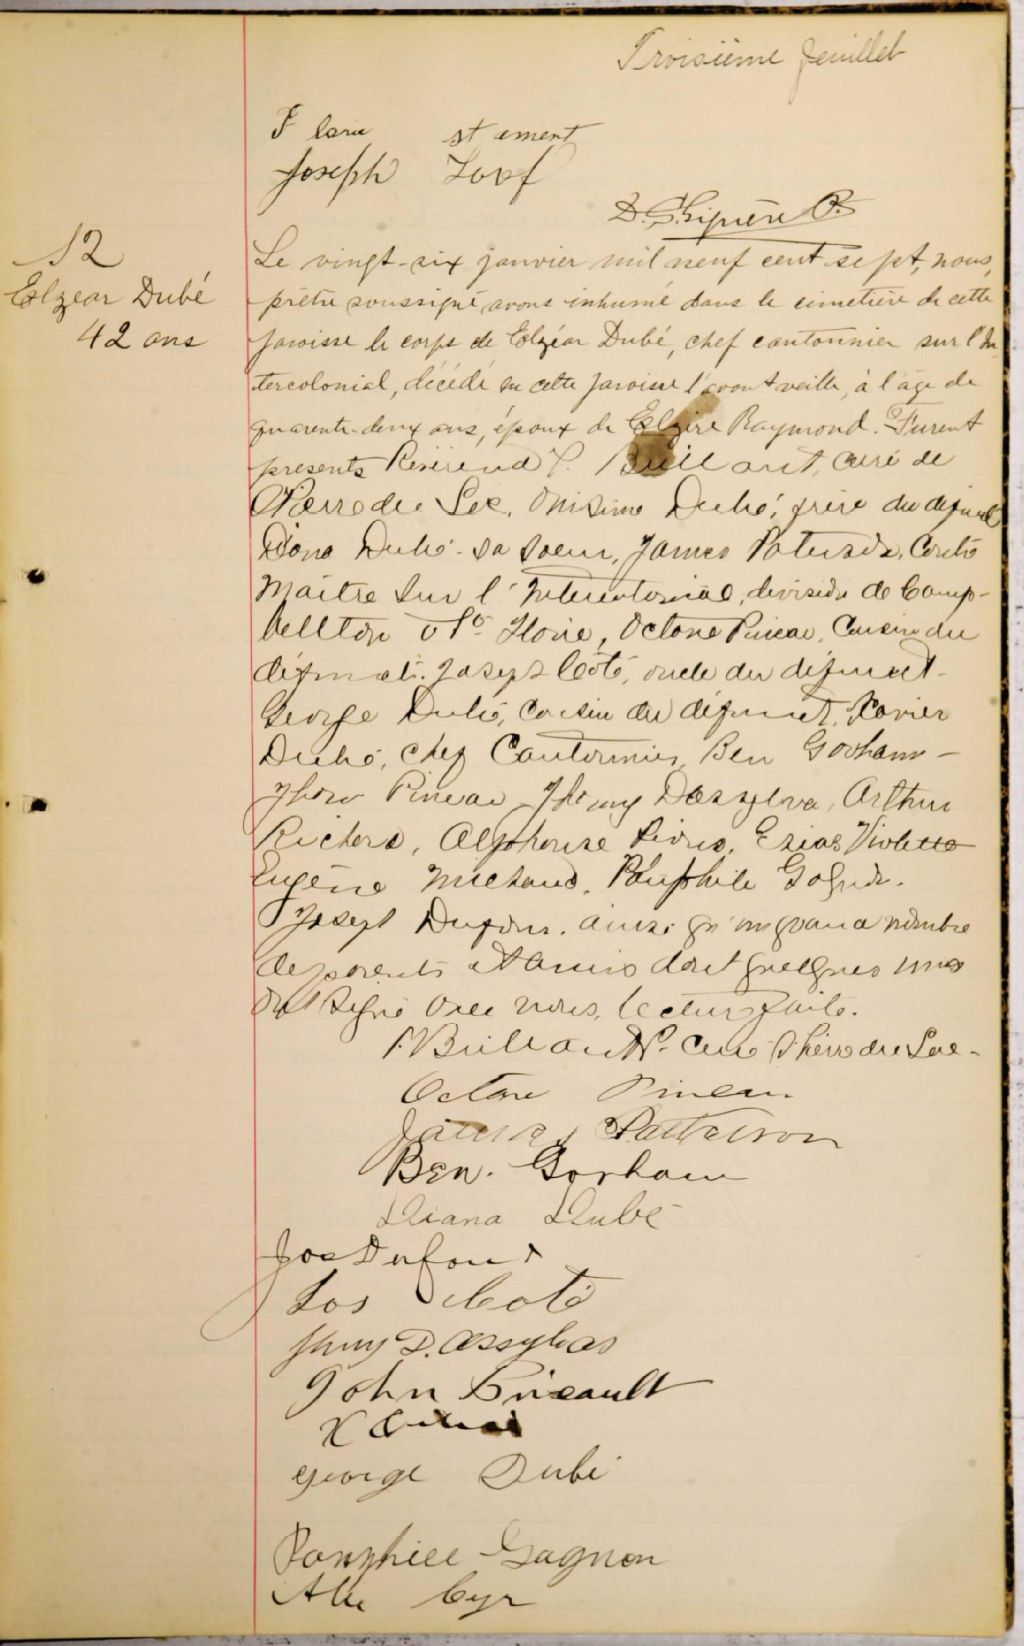 Troisième feuillet
Joseph
S2
Elzear Dubé
42 ans
Le vingt-six janvier mil neuf cent sept, nous,
prêtre soussigné avons inhumé dans le cimetière de cette
paroisse le corps de Elzéar Dubé, chef cantonnier sur l'In
tercolonial, décédé en cette paroisse l'avant veille, à l'âge de
quarante-deux ans, époux de Elzire Raymond. Furent
presents Révérend P. Brillant, curé de
du Lac, Onésime Dubé, frère du defunt
Dubé sa soeur, James Paterson, Contre
Maître sur l'Intercolonial, division de Camp-
bellton Ste Flavie, Octave Pineau, Cousin du
défunt. Joseph Coté, oncle du défunt.
George Dubé, Cousin du défunt, Xavier
Dubé, chef Cantonnier, Ben Gorham
Pineau, Dassylva, Arthur
Alphonse Ezias Violette
Eugène Michaud, Pamphile Gagnon.
Joseph Dufour. ainsi qu'un grand nombre
de parents et amis dont quelques uns
ont signé avec nous, lecture faite.
P. Brillant Ptre Curé du Lac.
Octave Pineau
James Patterson
Ben. Gorham
Diana Dubé
Joe Dufour
Jos Coté
D. assylvas
John
X
George Dubé
Pamphile Gagnon
Cyr